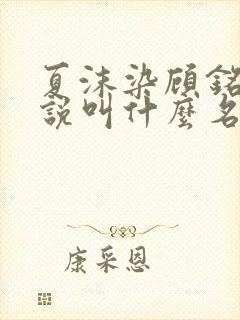 夏沫染顾銘
說叫什麼名
康采恩